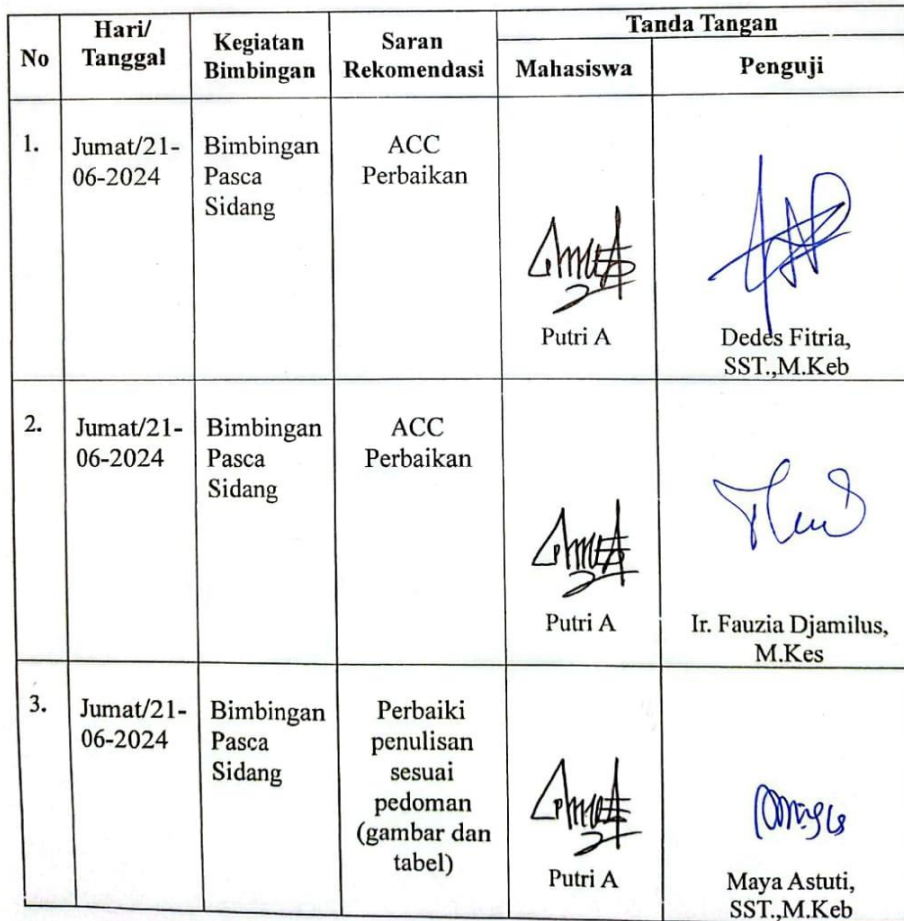 No
Hari/
Tanggal
Kegiatan
Bimbingan
Saran
Rekomendasi
Tanda Tangan
Mahasiswa
Penguji
1.
Jumat/21-
06-2024
Bimbingan
Pasca
Sidang
ACC
Perbaikan
Putri A
Dedes Fitria,
SST.,M.Keb
2.
Jumat/21-
06-2024
Bimbingan
Pasca
Sidang
ACC
Perbaikan
Putri A
Ir. Fauzia Djamilus,
M.Kes
3.
Jumat/21-
06-2024
Bimbingan
Pasca
Sidang
Perbaiki
penulisan
sesuai
pedoman
(gambar dan
tabel)
Putri A
Maya Astuti,
SST.,M.Keb